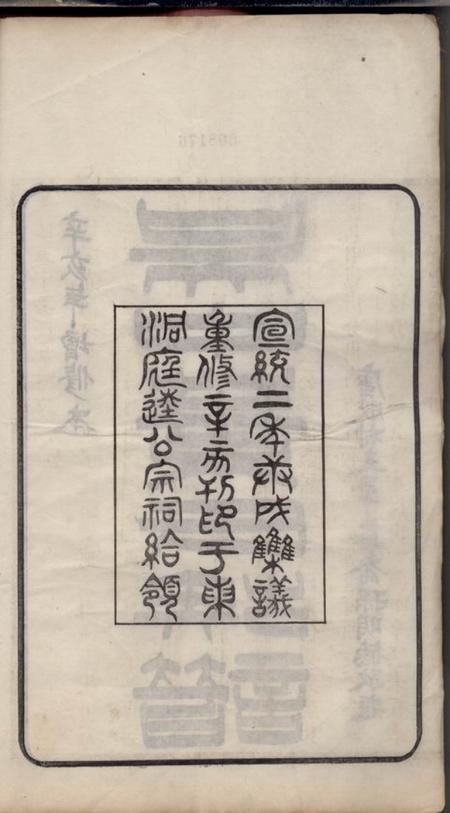 宣統二年庚戌雧議
重修辛亥刊印于東
洞庭逵公宗祠給領